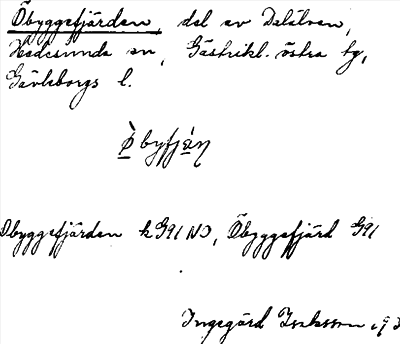 Öbyggefjärden, del av Dalälven,
Hedesunda sn, Gästrikl. östra tg,
Gävleborgs l.
Öbyggefjärden k G91 NO, Öbyggefjärd G91
Ingegärd Isaksson